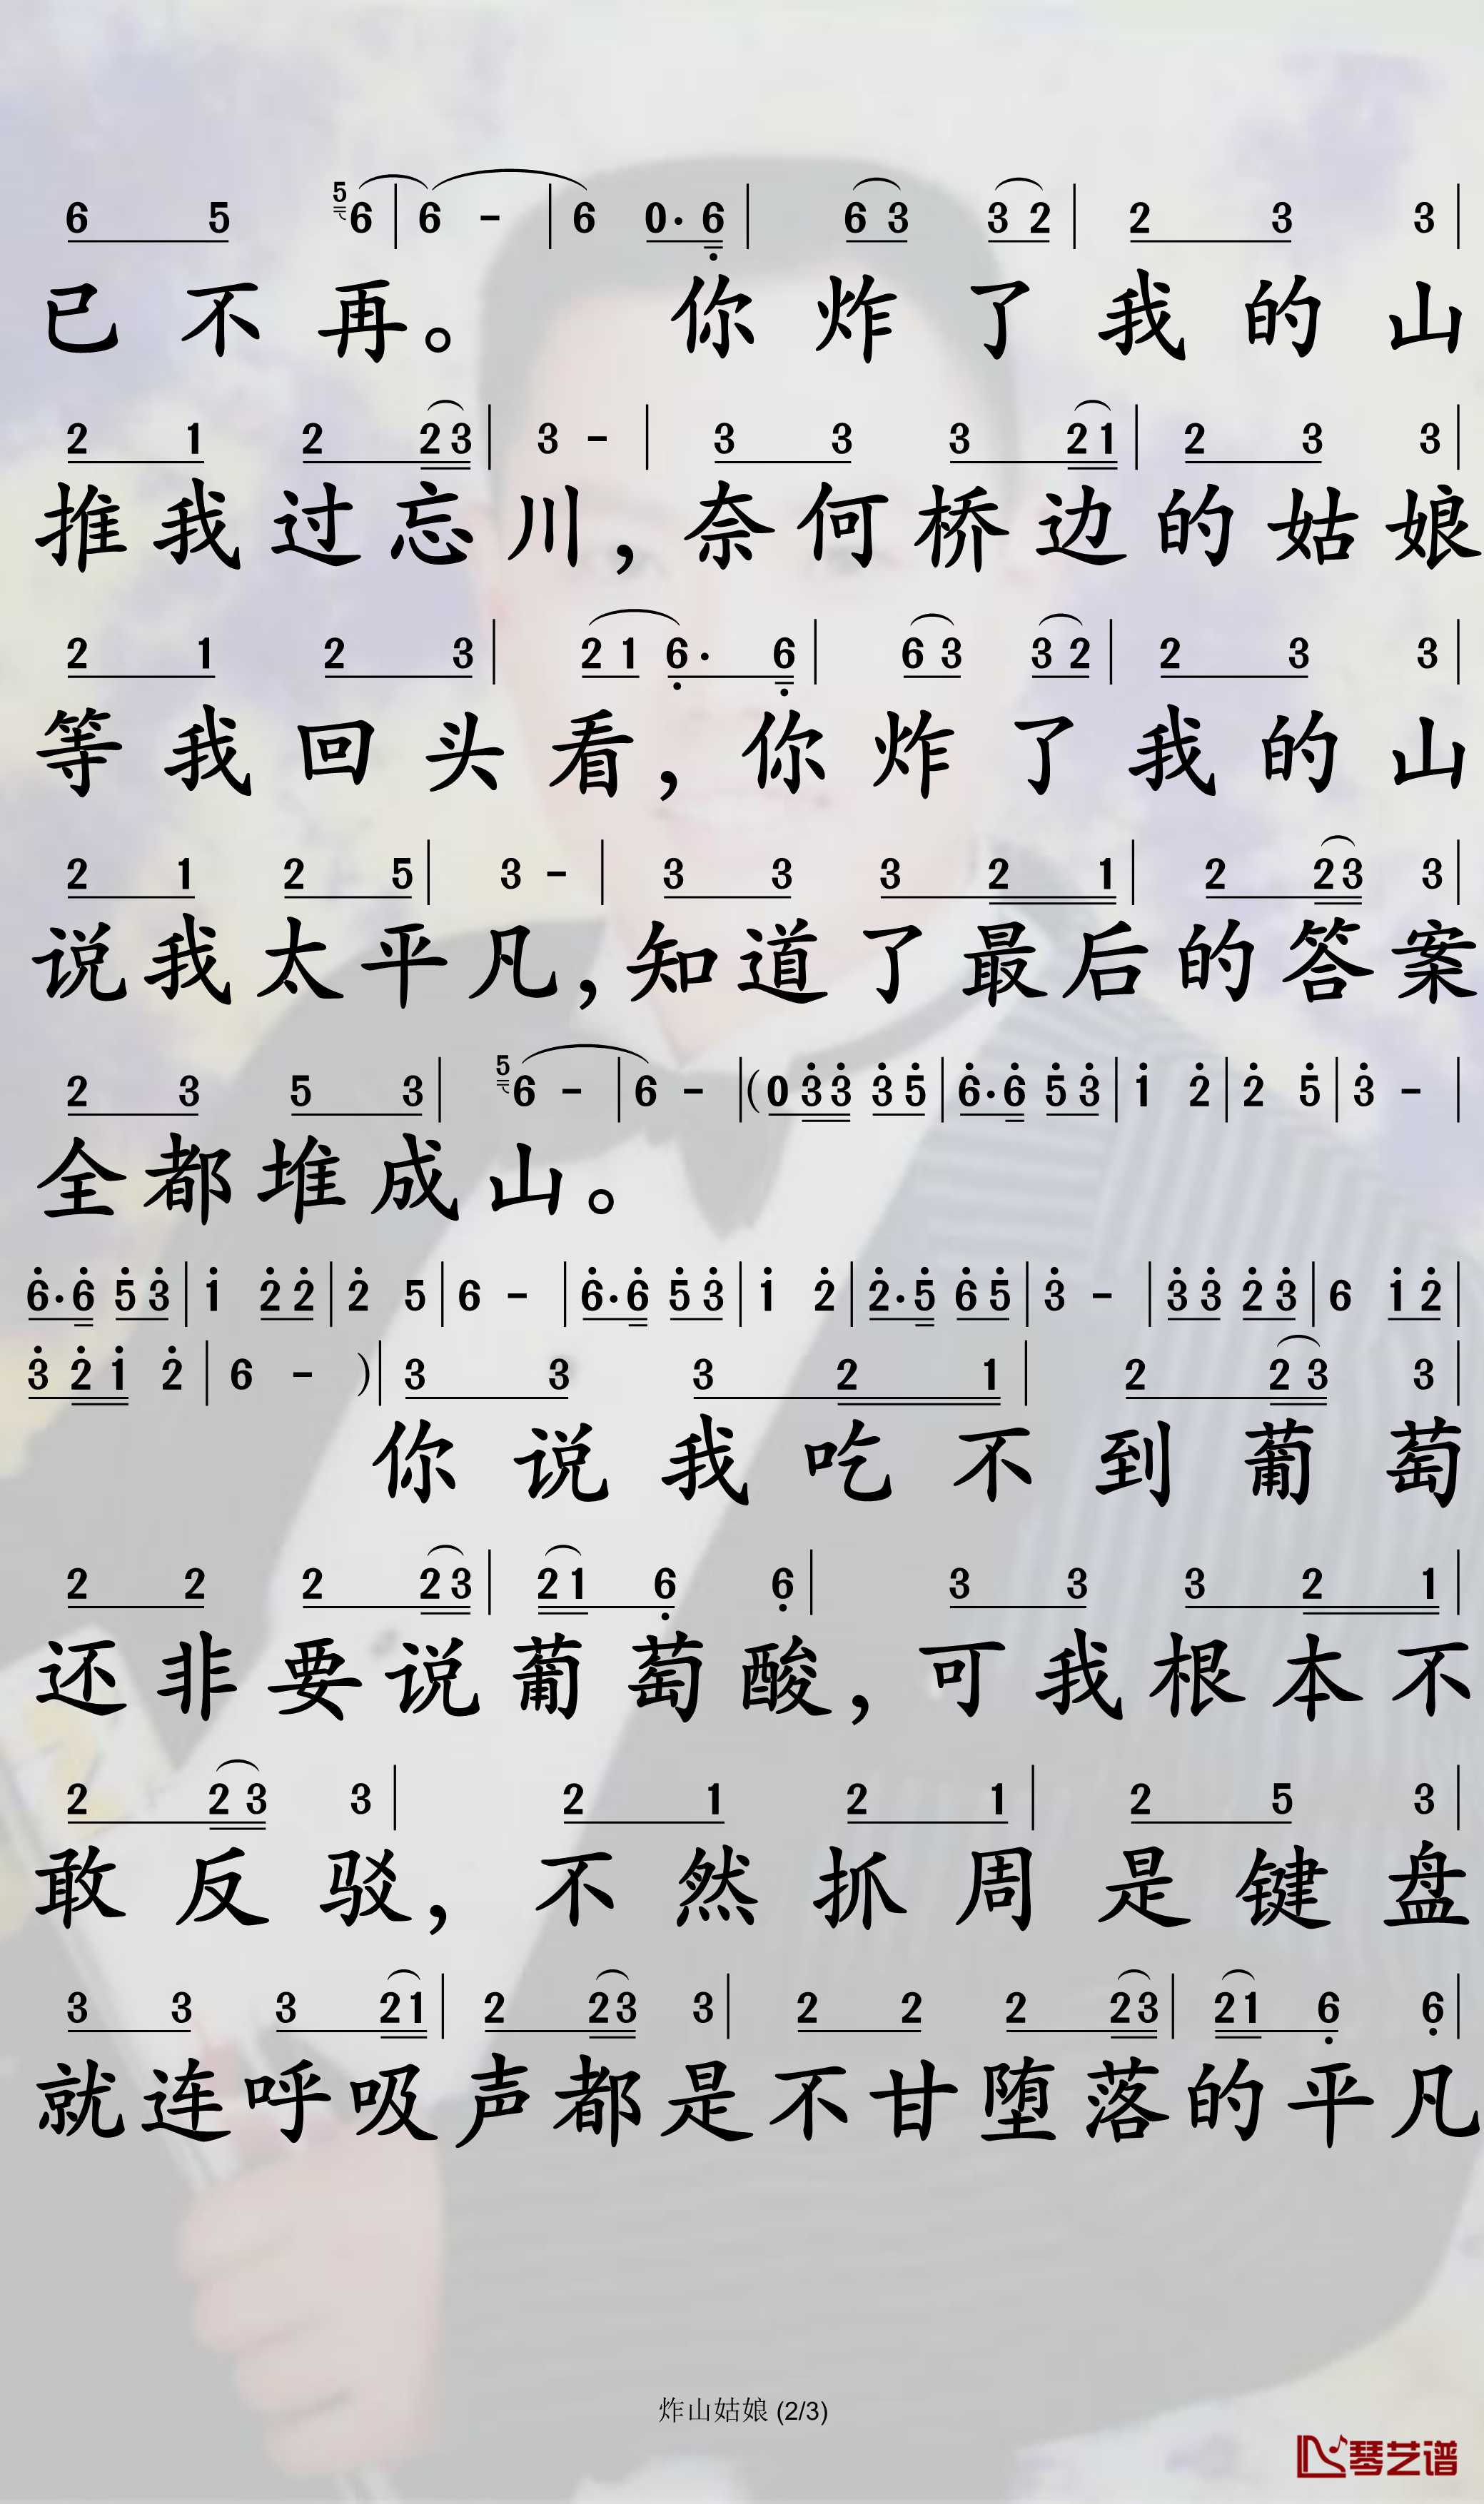 6 5 5 6 | 6 - | 6 0· 6 | 6 3 3 2 | 2 3 3 |
已不再。 你炸了我的山
2 1 2 2 3 | 3 - | 3 3 3 2 1 | 2 3 3 |
推我过忘川，奈何桥边的姑娘
2 1 2 3 | 2 1 6· 6 | 6 3 3 2 | 2 3 3 |
等我回头看，你炸了我的山
2 1 2 5 | 3 - | 3 3 3 2 1 | 2 2 3 3 |
说我太平凡，知道了最后的答案
2 3 5 3 | 5 6 - | 6 - | (0 3 3 3 5 | 6· 6 5 3 | 1 2 | 2 5 | 3 - |
全都堆成山。
6· 6 5 3 | 1 2 2 | 2 5 | 6 - | 6· 6 5 3 | 1 2 | 2· 5 6 5 | 3 - | 3 3 2 3 | 6 1 2 |
3 2 1 2 | 6 - ) | 3 3 3 2 1 | 2 2 3 3 |
你说我吃不到葡萄
2 2 2 2 3 | 2 1 6 6 | 3 3 3 2 1 |
还非要说葡萄酸，可我根本不
2 2 3 3 | 2 1 2 1 | 2 5 3 |
敢反驳，不然抓周是键盘
3 3 3 2 1 | 2 2 3 3 | 2 2 2 2 3 | 2 1 6 6 |
就连呼吸声都是不甘堕落的平凡
炸山姑娘 (2/3)
琴艺谱